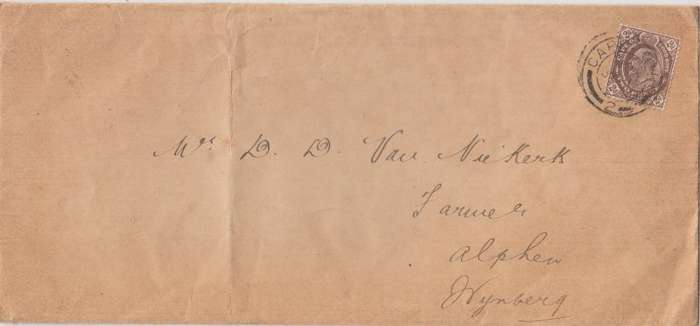 CAP
2
Mr D. D. Van Niekerk
Farmer
Alphen
Wynberg